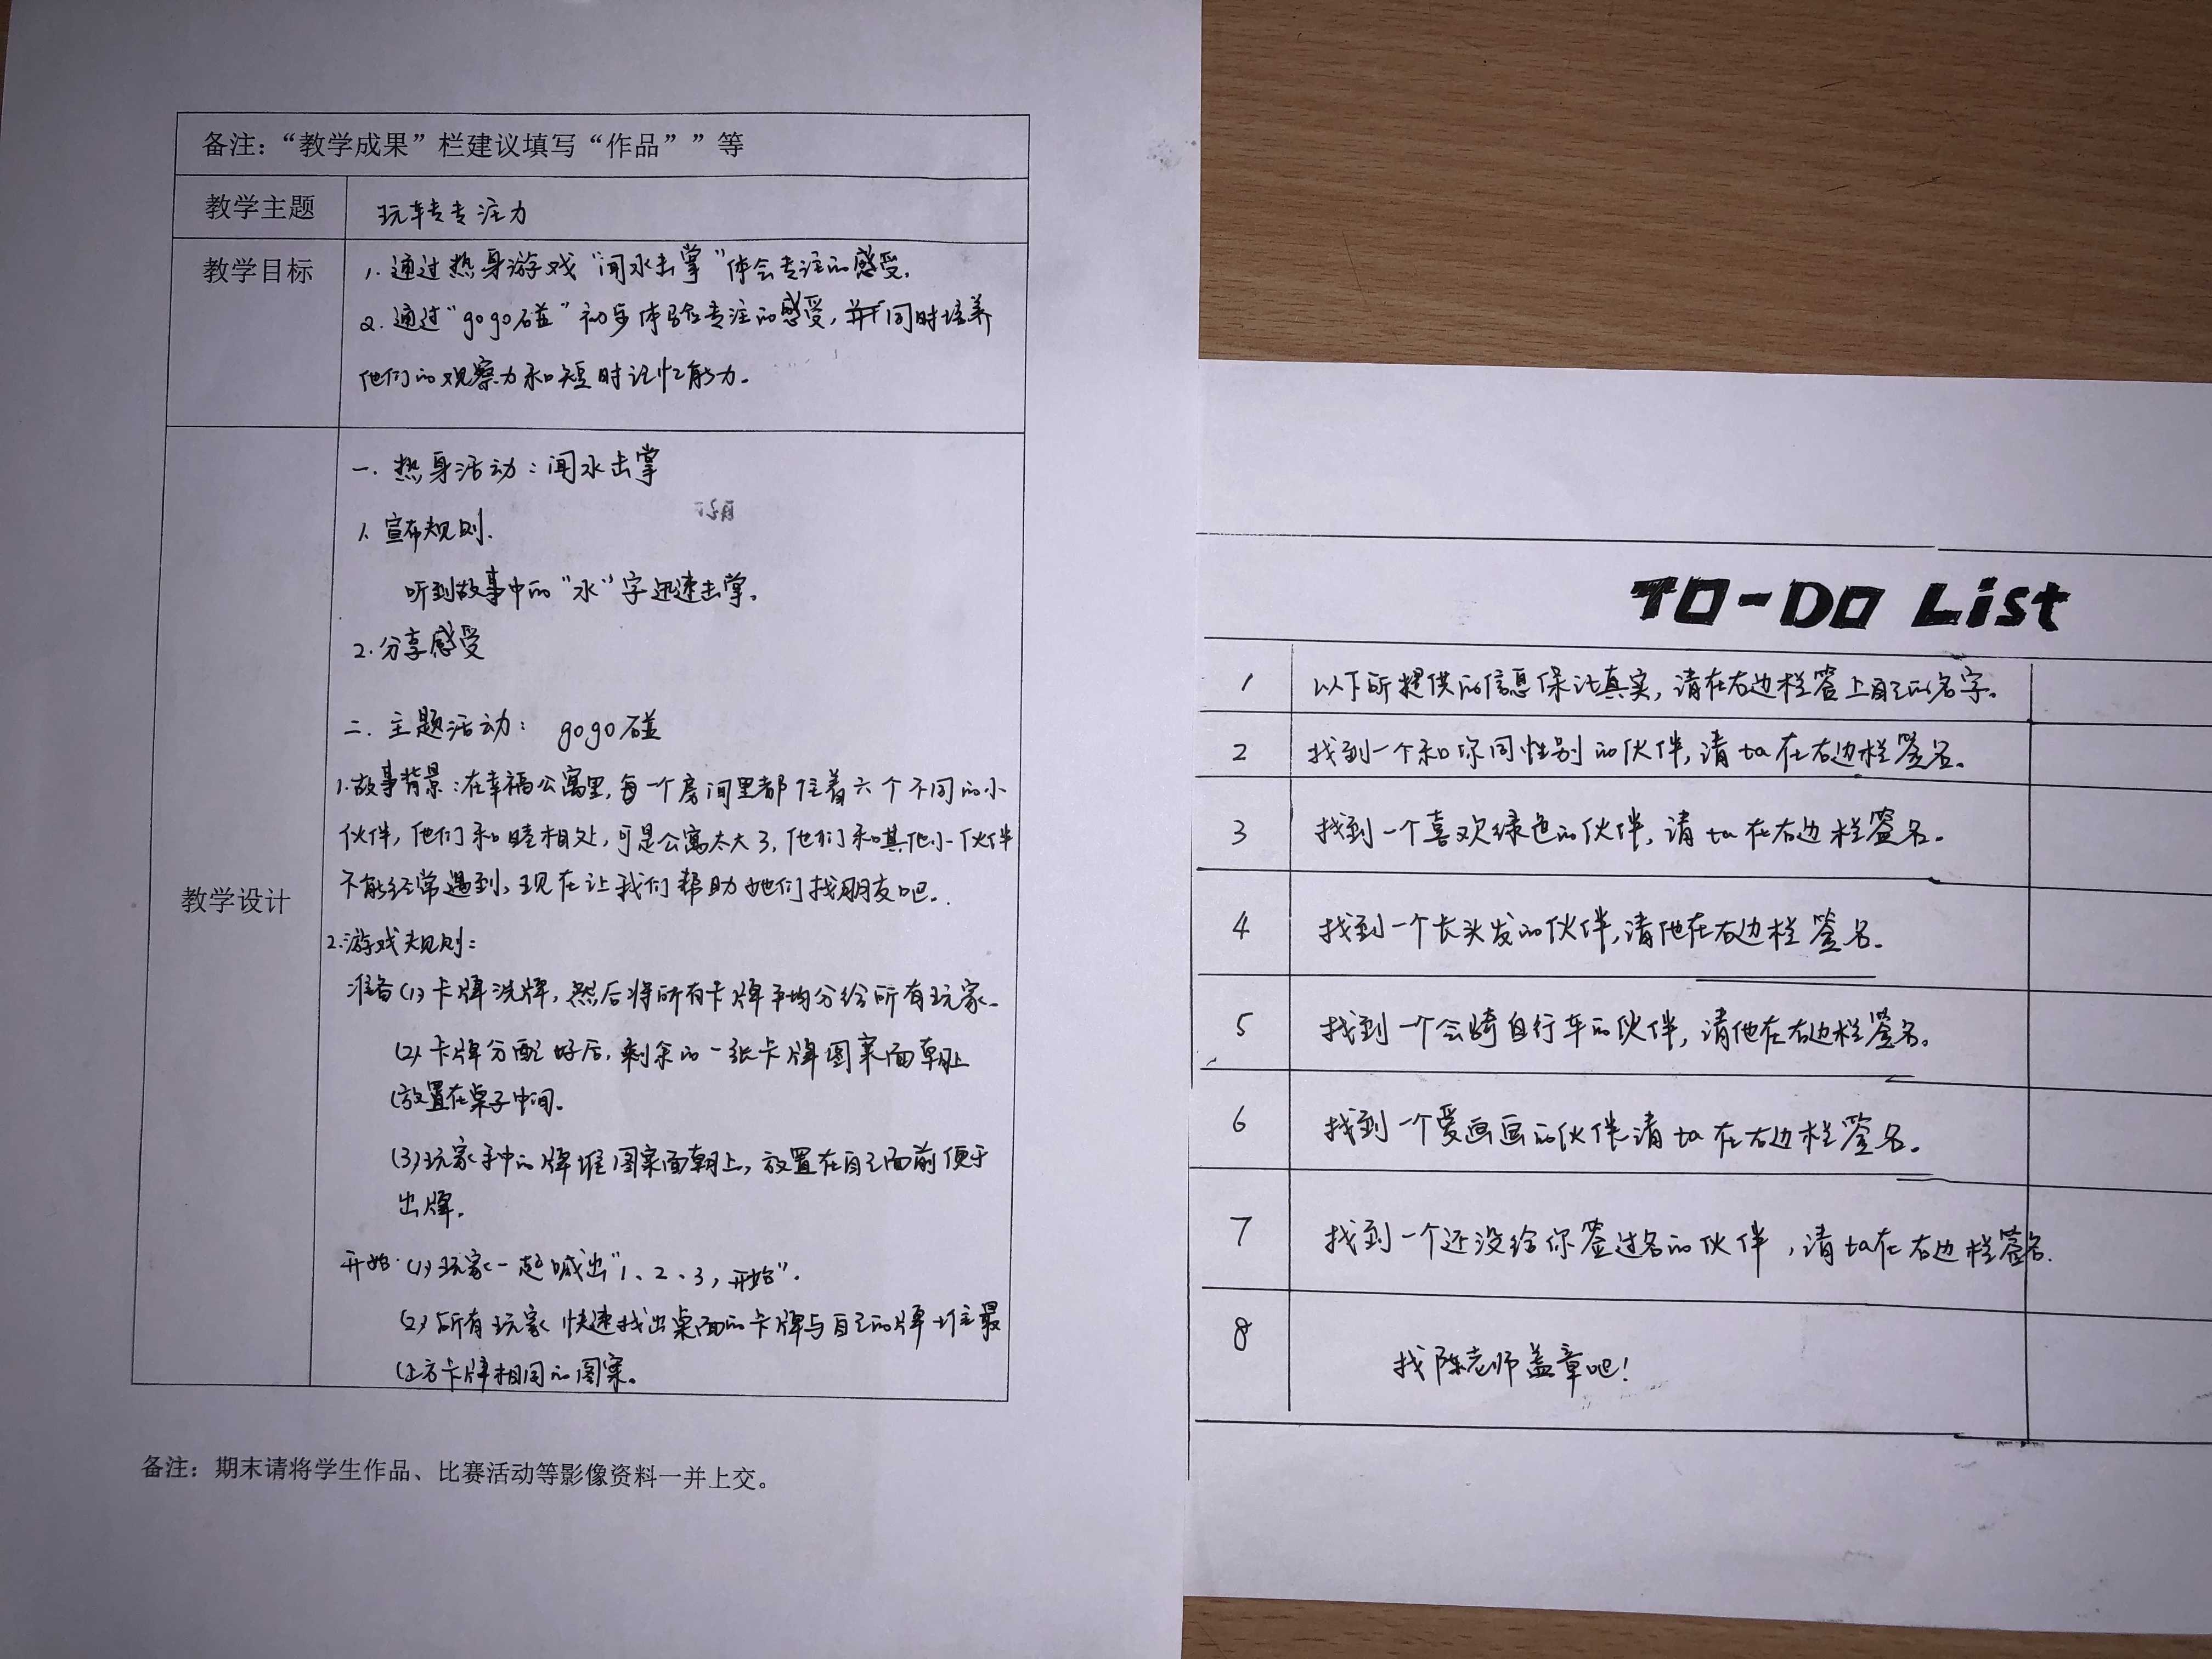 备注：“教学成果”栏建议填写“作品””等
教学主题
玩转专注力
教学目标
1. 通过热身游戏“闻水击掌”体会专注的感受.
2. 通过“gogo碰”初步体验专注的感受，并同时培养
他们的观察力和短时记忆能力.
教学设计
一. 热身活动：闻水击掌
1. 宣布规则.
听到故事中的“水”字迅速击掌.
2. 分享感受
二. 主题活动： gogo碰
1.故事背景：在幸福公寓里，每一个房间里都住着六个不同的小
伙伴，他们和睦相处，可是公寓太大了，他们和其他小伙伴
不能经常遇到，现在让我们帮助她们找朋友吧.
2.游戏规则：
准备(1) 卡牌洗牌，然后将所有卡牌平均分给所有玩家.
(2) 卡牌分配好后，剩余的一张卡牌图案面朝上
放置在桌子中间。
(3)玩家手中的牌堆图案面朝上，放置在自己面前便于
出牌。
开始 (1) 玩家一起喊出“1、2、3，开始”.
(2) 所有玩家快速找出桌面的卡牌与自己的牌堆最
上方卡牌相同的图案。
备注：期末请将学生作品、比赛活动等影像资料一并上交。
TO-DO List
1 以下所提供的信息保证真实，请在右边栏签上自己的名字。
2 找到一个和你同性别的伙伴，请ta在右边栏签名。
3 找到一个喜欢绿色的伙伴，请ta在右边栏签名。
4 找到一个长头发的伙伴，请他在右边栏签名.
5 找到一个会骑自行车的伙伴，请他在右边栏签名。
6 找到一个爱画画的伙伴请ta在右边栏签名。
7 找到一个还没给你签过名的伙伴，请ta在右边栏签名.
8 找陈老师盖章吧！